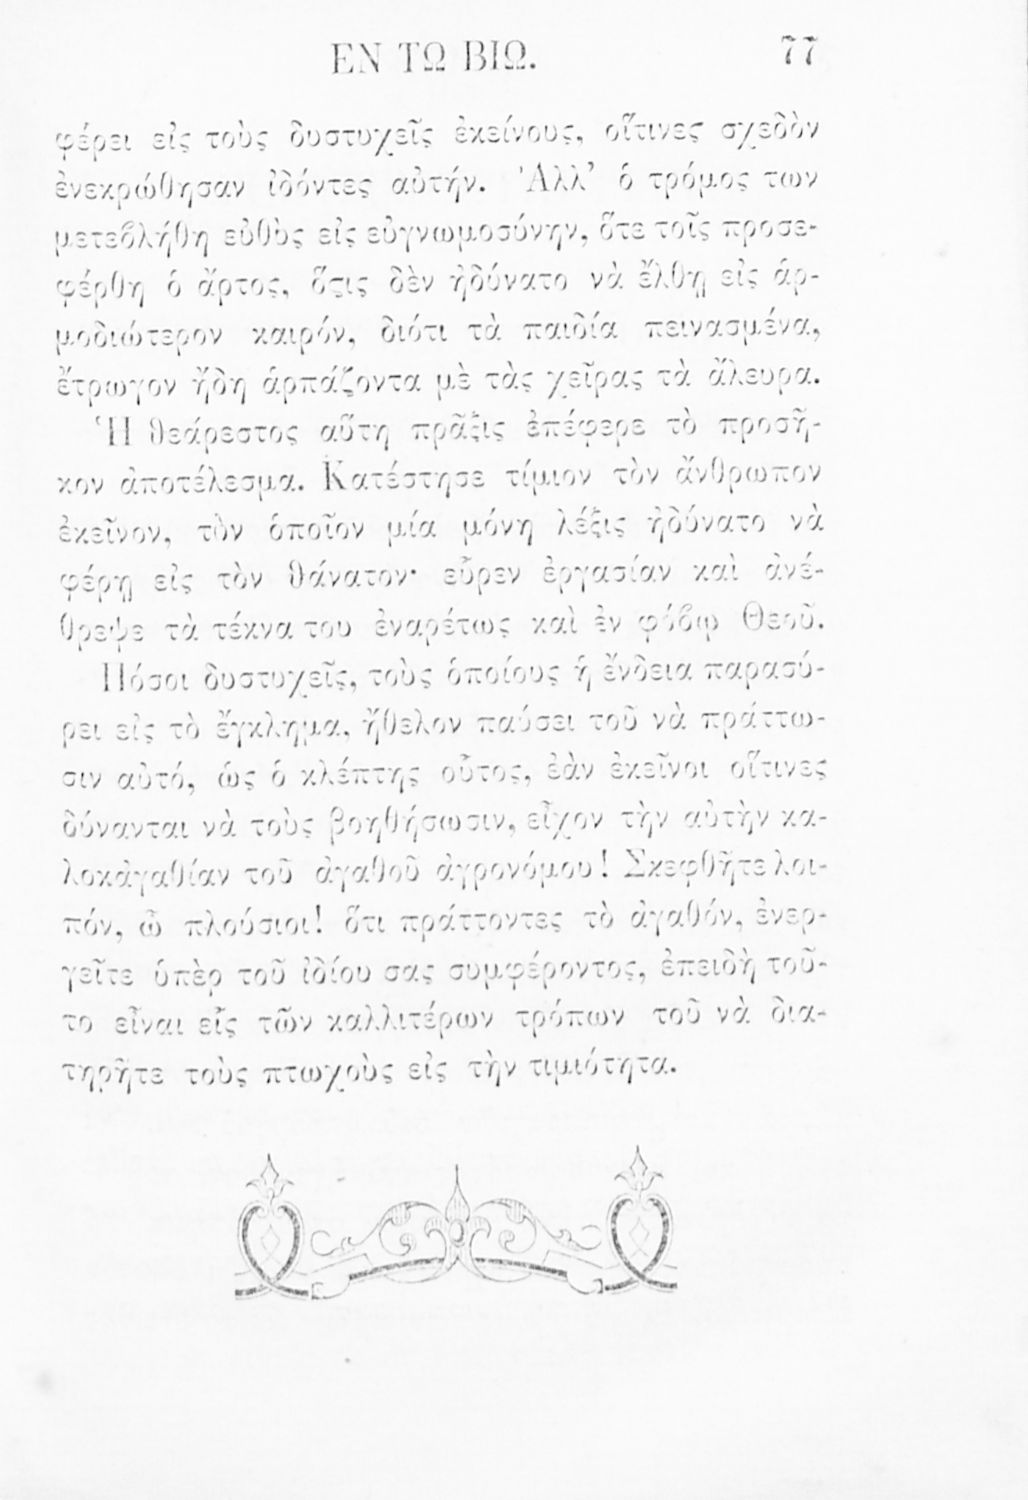 ΕΝ ΤΩ ΒΙΩ. 77
φέρει εἰς τοὺς δυστυχεῖς ἐκείνους, οἵτινες σχεδὸν
ἐνεκρώθησαν ἰδόντες αὐτήν. Ἀλλ’ ὁ τρόμος των
μετεβλήθη εὐθὺς εἰς εὐγνωμοσύνην, ὅτε τοῖς προσε-
φέρθη ὁ ἄρτος, ὅςτις δὲν ἠδύνατο νὰ ἔλθῃ εἰς ἁρ-
μοδιώτερον καιρόν, διότι τὰ παιδία πεινασμένα,
ἔτρωγον ἤδη ἁρπάζοντα μὲ τὰς χεῖρας τὰ ἄλευρα.
Ἡ θεάρεστος αὕτη πρᾶξις ἐπέφερε τὸ προσῆ-
κον ἀποτέλεσμα. Κατέστησε τίμιον τὸν ἄνθρωπον
ἐκεῖνον, τὸν ὁποῖον μία μόνη λέξις ἠδύνατο νὰ
φέρῃ εἰς τὸν θάνατον· εὗρεν ἐργασίαν καὶ ἀνέ-
θρεψε τὰ τέκνα του ἐναρέτως καὶ ἐν φόβῳ Θεοῦ.
Πόσοι δυστυχεῖς, τοὺς ὁποίους ἡ ἔνδεια παρασύ-
ρει εἰς τὸ ἔγκλημα, ἤθελον παύσει τοῦ νὰ πράττω-
σιν αὐτό, ὡς ὁ κλέπτης οὗτος, ἐὰν ἐκεῖνοι οἵτινες
δύνανται νὰ τοὺς βοηθήσωσιν, εἶχον τὴν αὐτὴν κα-
λοκἀγαθίαν τοῦ ἀγαθοῦ ἀγρονόμου! Σκεφθῆτε λοι-
πόν, ὦ πλούσιοι! ὅτι πράττοντες τὸ ἀγαθόν, ἐνερ-
γεῖτε ὑπὲρ τοῦ ἰδίου σας συμφέροντος, ἐπειδὴ τοῦ-
το εἶναι εἷς τῶν καλλιτέρων τρόπων τοῦ νὰ δια-
τηρῆτε τοὺς πτωχοὺς εἰς τὴν τιμιότητα.